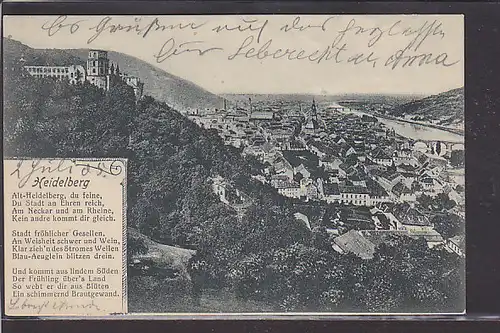 Es Grüßen auf das
für Leberecht Anna
2 Juli 06
Heidelberg
Alt-Heidelberg, du feine,
Du Stadt an Ehren reich,
Am Neckar und am Rheine,
Kein andre kommt dir gleich.
Stadt fröhlicher Gesellen,
An Weisheit schwer und Wein,
Klar zieh'n des Stromes Wellen
Blau-Aeuglein blitzen drein.
Und kommt aus lindem Süden
Der Frühling über's Land
So webt er dir aus Blüten
Ein schimmernd Brautgewand.